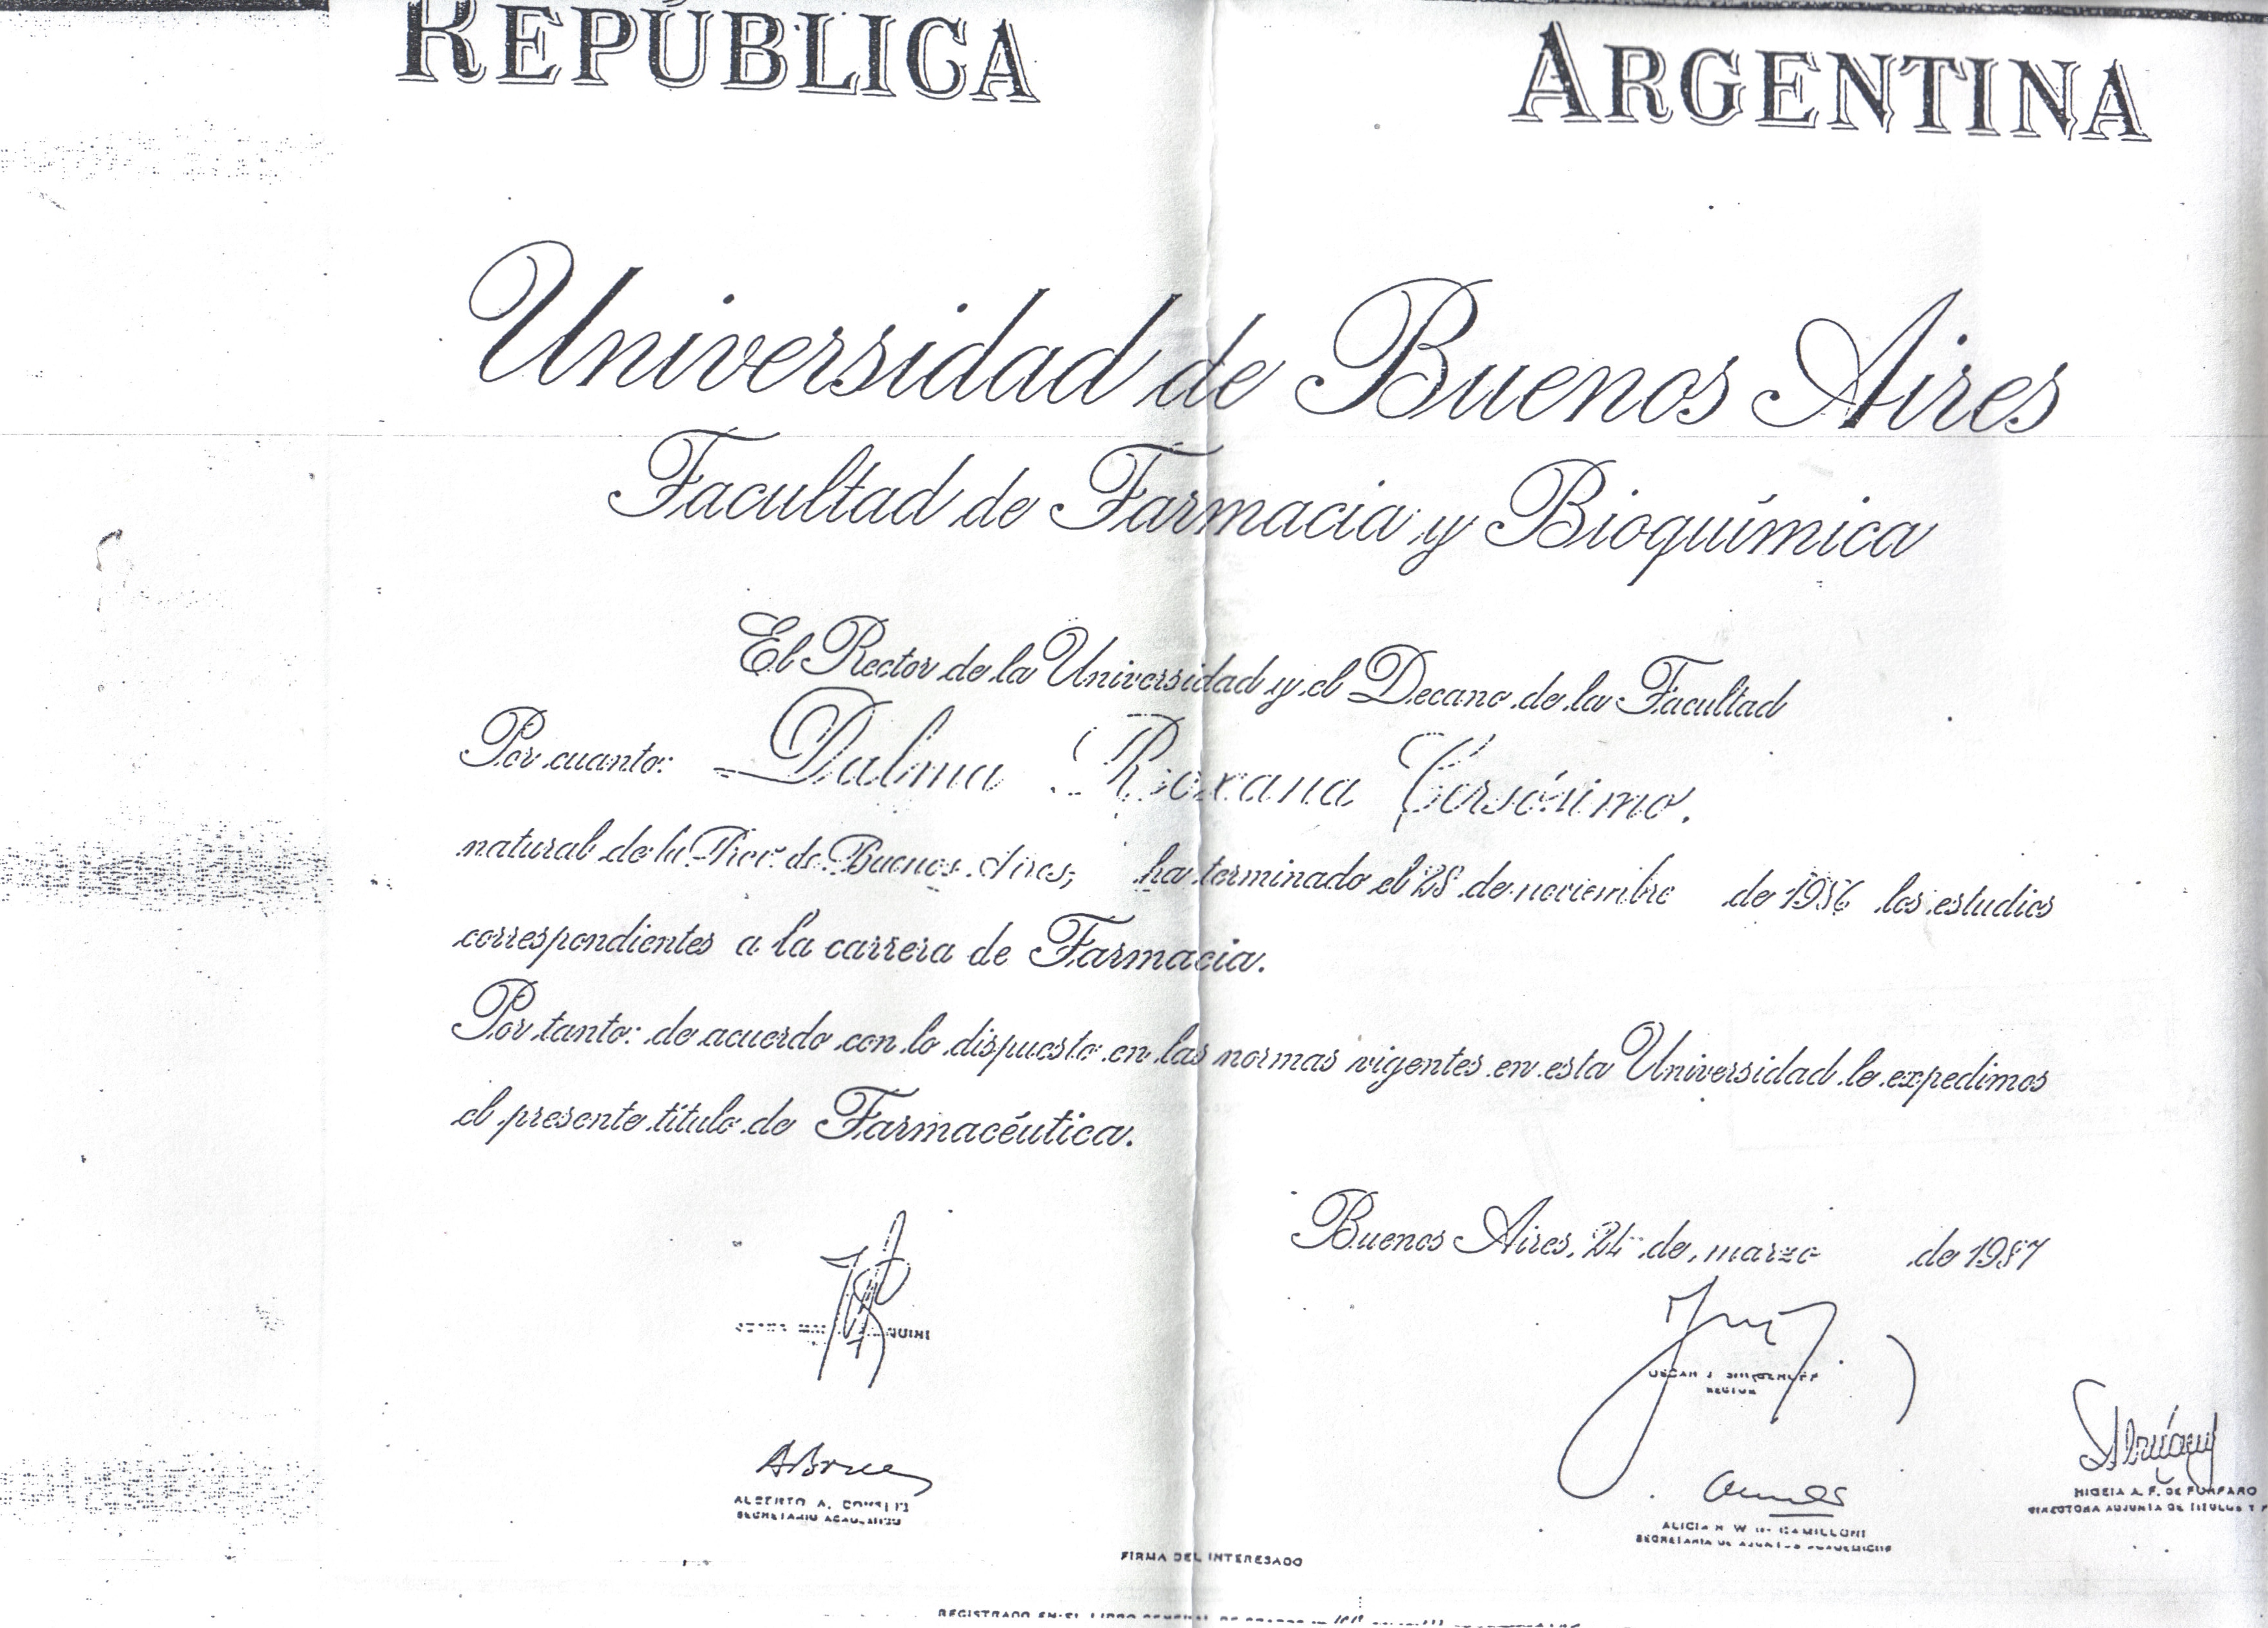 REPÚBLICA ARGENTINA
Universidad de Buenos Aires
Facultad de Farmacia y Bioquímica
El Rector de la Universidad y el Decano de la Facultad
Por cuanto: Dalma Roxana
natural de la Prov. de Buenos Aires, ha terminado el 28 de noviembre de 1986 los estudios
correspondientes a la carrera de Farmacia.
Por tanto: de acuerdo con lo dispuesto en las normas vigentes en esta Universidad le expedimos
el presente título de Farmacéutica.
Buenos Aires, 24 de marzo de 1987
OSCAR J.
RECTOR
ALBERTO A.
SECRETARIO ACADEMICO
ALICIA W CAMILLONI
SECRETARIA DE ASUNTOS ACADEMICOS
HIGEIA A. F. DE FURFARO
DIRECTORA ADJUNTA DE TITULOS Y
FIRMA DEL INTERESADO
REGISTRADO EN EL LIBRO GENERAL DE